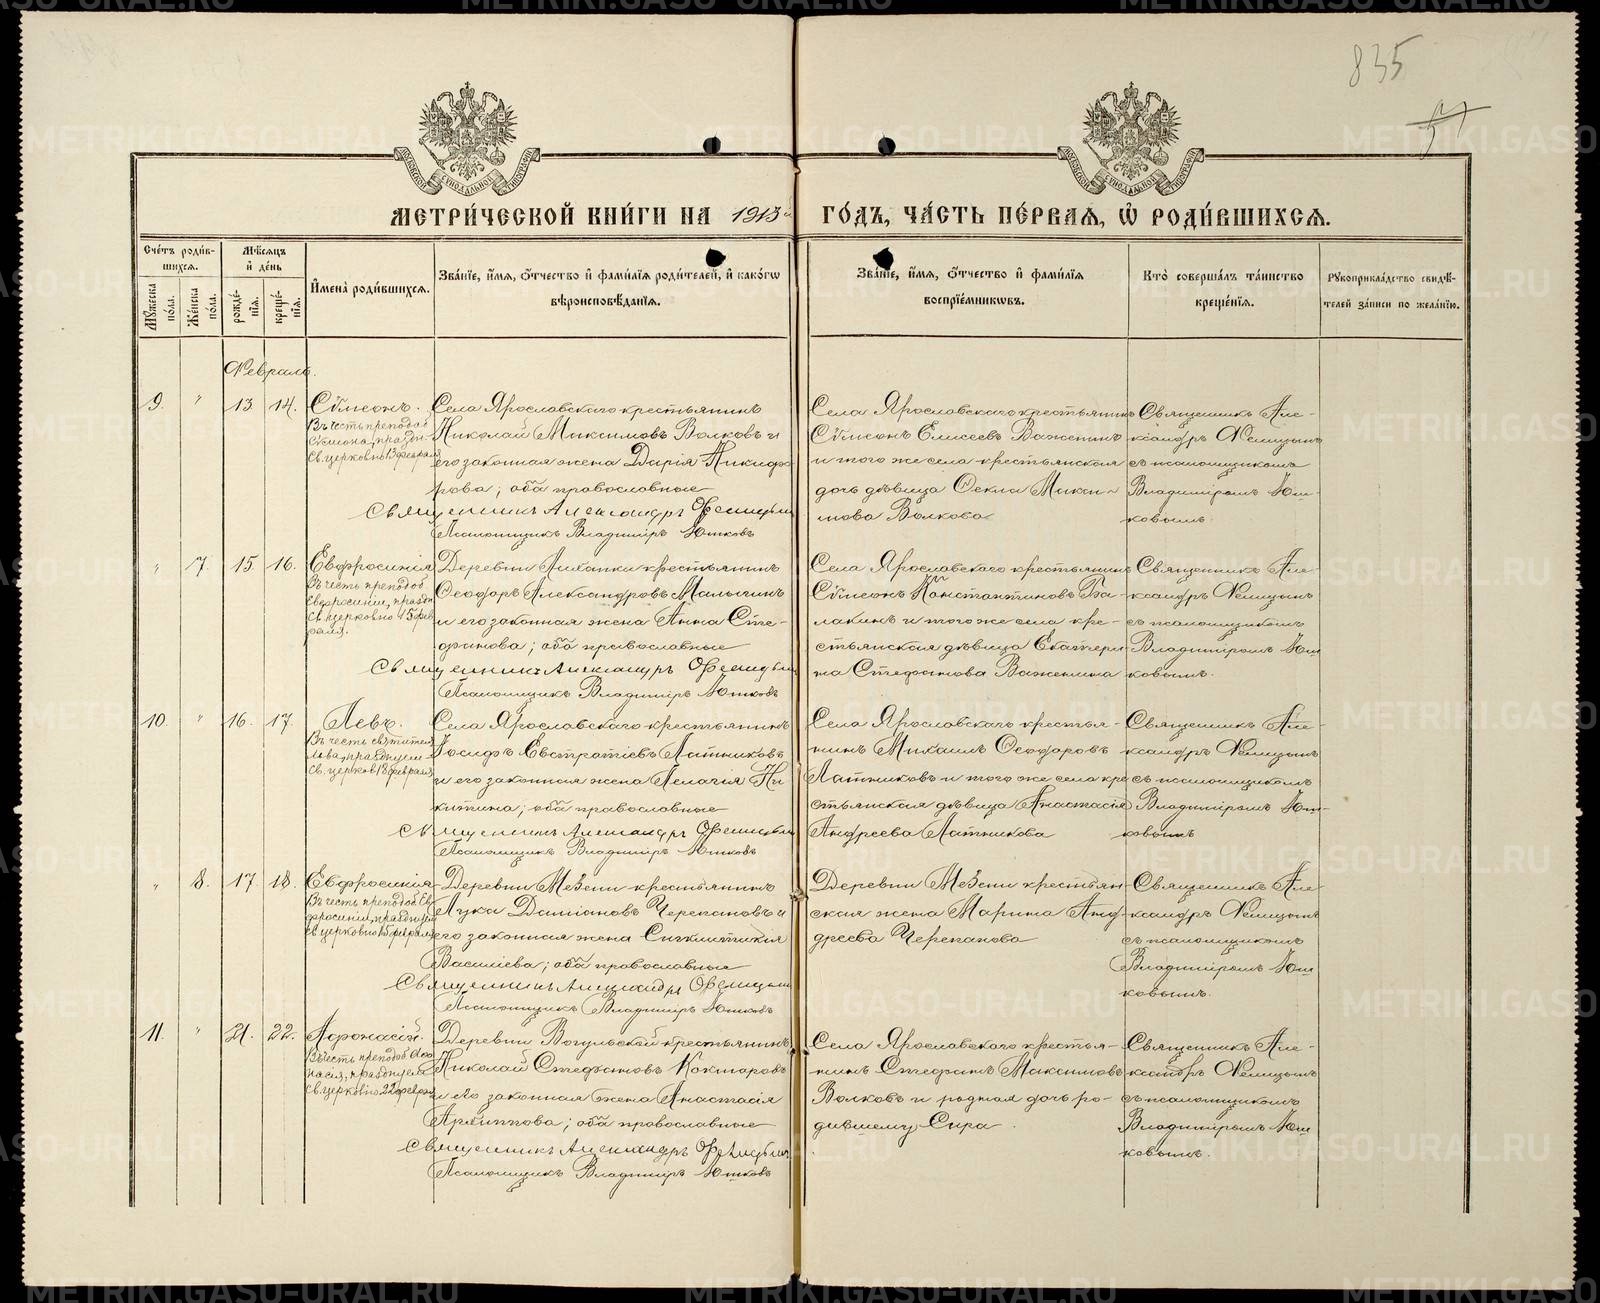 835
57
МОСКОВСКОЙ СУНОДАЛЬНОЙ ТИПОГРАФІИ
МОСКОВСКОЙ СУНОДАЛЬНОЙ ТИПОГРАФІИ
МЕТРИ́ЧЕСКОЙ КНИ́ГИ НА 1913й ГО́ДЪ, ЧА́СТЬ ПЕ́РВАЯ, Ѡ҆ РОДИ́ВШИХСЯ.
Сче́тъ роди́в-
шихся.
Мѣ́сяцъ
и҆ де́нь
Му́жеска
по́ла.
Же́нска
по́ла.
рожде́-
нія.
креще́-
нія.
И҆мена̀ роди́вшихся.
Зва́ніе, и҆́мя, ѻ҆́тчество и҆ фами́лія роди́телей, и҆ како́гѡ
вѣроисповѣ́данія.
Зва́ніе, и҆́мя, ѻ҆́тчество и҆ фами́лія
воспріе́мникѡвъ.
Кто̀ соверша́лъ та́инство
креще́нія.
Рꙋкоприкла́дство свидѣ́-
телей за́писи по жела́нію.
Февраль.
9. " 13. 14.
Сѷмеонъ.
Въ честь преподоб
Сѷмеона, праздн.
св. церковію 13 феврал
Села Ярославскаго крестьянинъ
Николай Максимовъ Волковъ и
его законная жена Дарія Никифо-
рова; оба православные
Священникъ Александръ Ѳелицынъ
Псаломщикъ Владиміръ Юшковъ
Села Ярославскаго крестьянинъ
Сѷмеонъ Елисеевъ Важенинъ
и того же села крестьянская
дочь дѣвица Ѳекла Макси-
мова Волкова
Священникъ Але-
ксандръ Ѳелицынъ
съ псаломщикомъ
Владиміромъ Юш-
ковымъ.
" 7. 15. 16.
Евфросинія
Въ честь преподоб
Евфросиніи, праздн
св. церковію 15 фев
раля.
Деревни Алѣхины крестьянинъ
Ѳеодоръ Александровъ Малыгинъ
и его законная жена Анна Сте-
фанова; оба православные
Священникъ Александръ Ѳелицынъ
Псаломщикъ Владиміръ Юшковъ
Села Ярославскаго крестьянинъ
Сѷмеонъ Константиновъ Ба-
лакинъ и того же села кре-
стьянская дѣвица Екатери-
на Стефанова Важенина
Священникъ Але-
ксандръ Ѳелицынъ
съ псаломщикомъ
Владиміромъ Юш
ковымъ.
10. " 16. 17.
Левъ.
Въ честь святител
Льва, празднуем
св. церков 18 февраля
Села Ярославскаго крестьянинъ
Іосифъ Евстратіевъ Латниковъ
и его законная жена Пелагія Ни
китина; оба православные
Священникъ Александръ Ѳелицынъ
Псаломщикъ Владиміръ Юшковъ
Села Ярославскаго крестья-
нинъ Михаилъ Ѳеодоровъ
Латниковъ и того же села кре
стьянская дѣвица Анастасія
Андреева Латникова
Священникъ Але-
ксандръ Ѳелицынъ
съ псаломщикомъ
Владиміромъ Юш-
ковымъ
" 8. 17. 18.
Евфросинія
Въ честь преподоб Ев
фросиніи, празднуем
св. церковію 15 февраля
Деревни Мезени крестьянинъ
Лука Даміановъ Черепановъ и
его законная жена Сигклитикія
Васильева; оба православные
Священникъ Александръ Ѳелицынъ
Псаломщикъ Владиміръ Юшковъ
Деревни Мезени крестьян-
ская жена Марина Анд-
дреева Черепанова
Священникъ Але-
ксандръ Ѳелицынъ
съ псаломщикомъ
Владиміромъ Юш
ковымъ.
11. " 21. 22.
Аѳонасій.
Въ честь преподоб Аѳо
насія, празднуем
св. церковію 22 феврал
Деревни Вогульской крестьянинъ
Николай Стефановъ Кокшаровъ
и его законная жена Анастасія
Архиппова; оба православные
Священникъ Александръ Ѳелицынъ
Псаломщикъ Владиміръ Юшковъ
Села Ярославскаго крестья-
нинъ Стефанъ Максимовъ
Волковъ и родная дочь ро-
дившему Сира
Священникъ Але-
ксандръ Ѳелицынъ
съ псаломщикомъ
Владиміромъ Юш
ковымъ.
METRIKI.GASO-URAL.RU